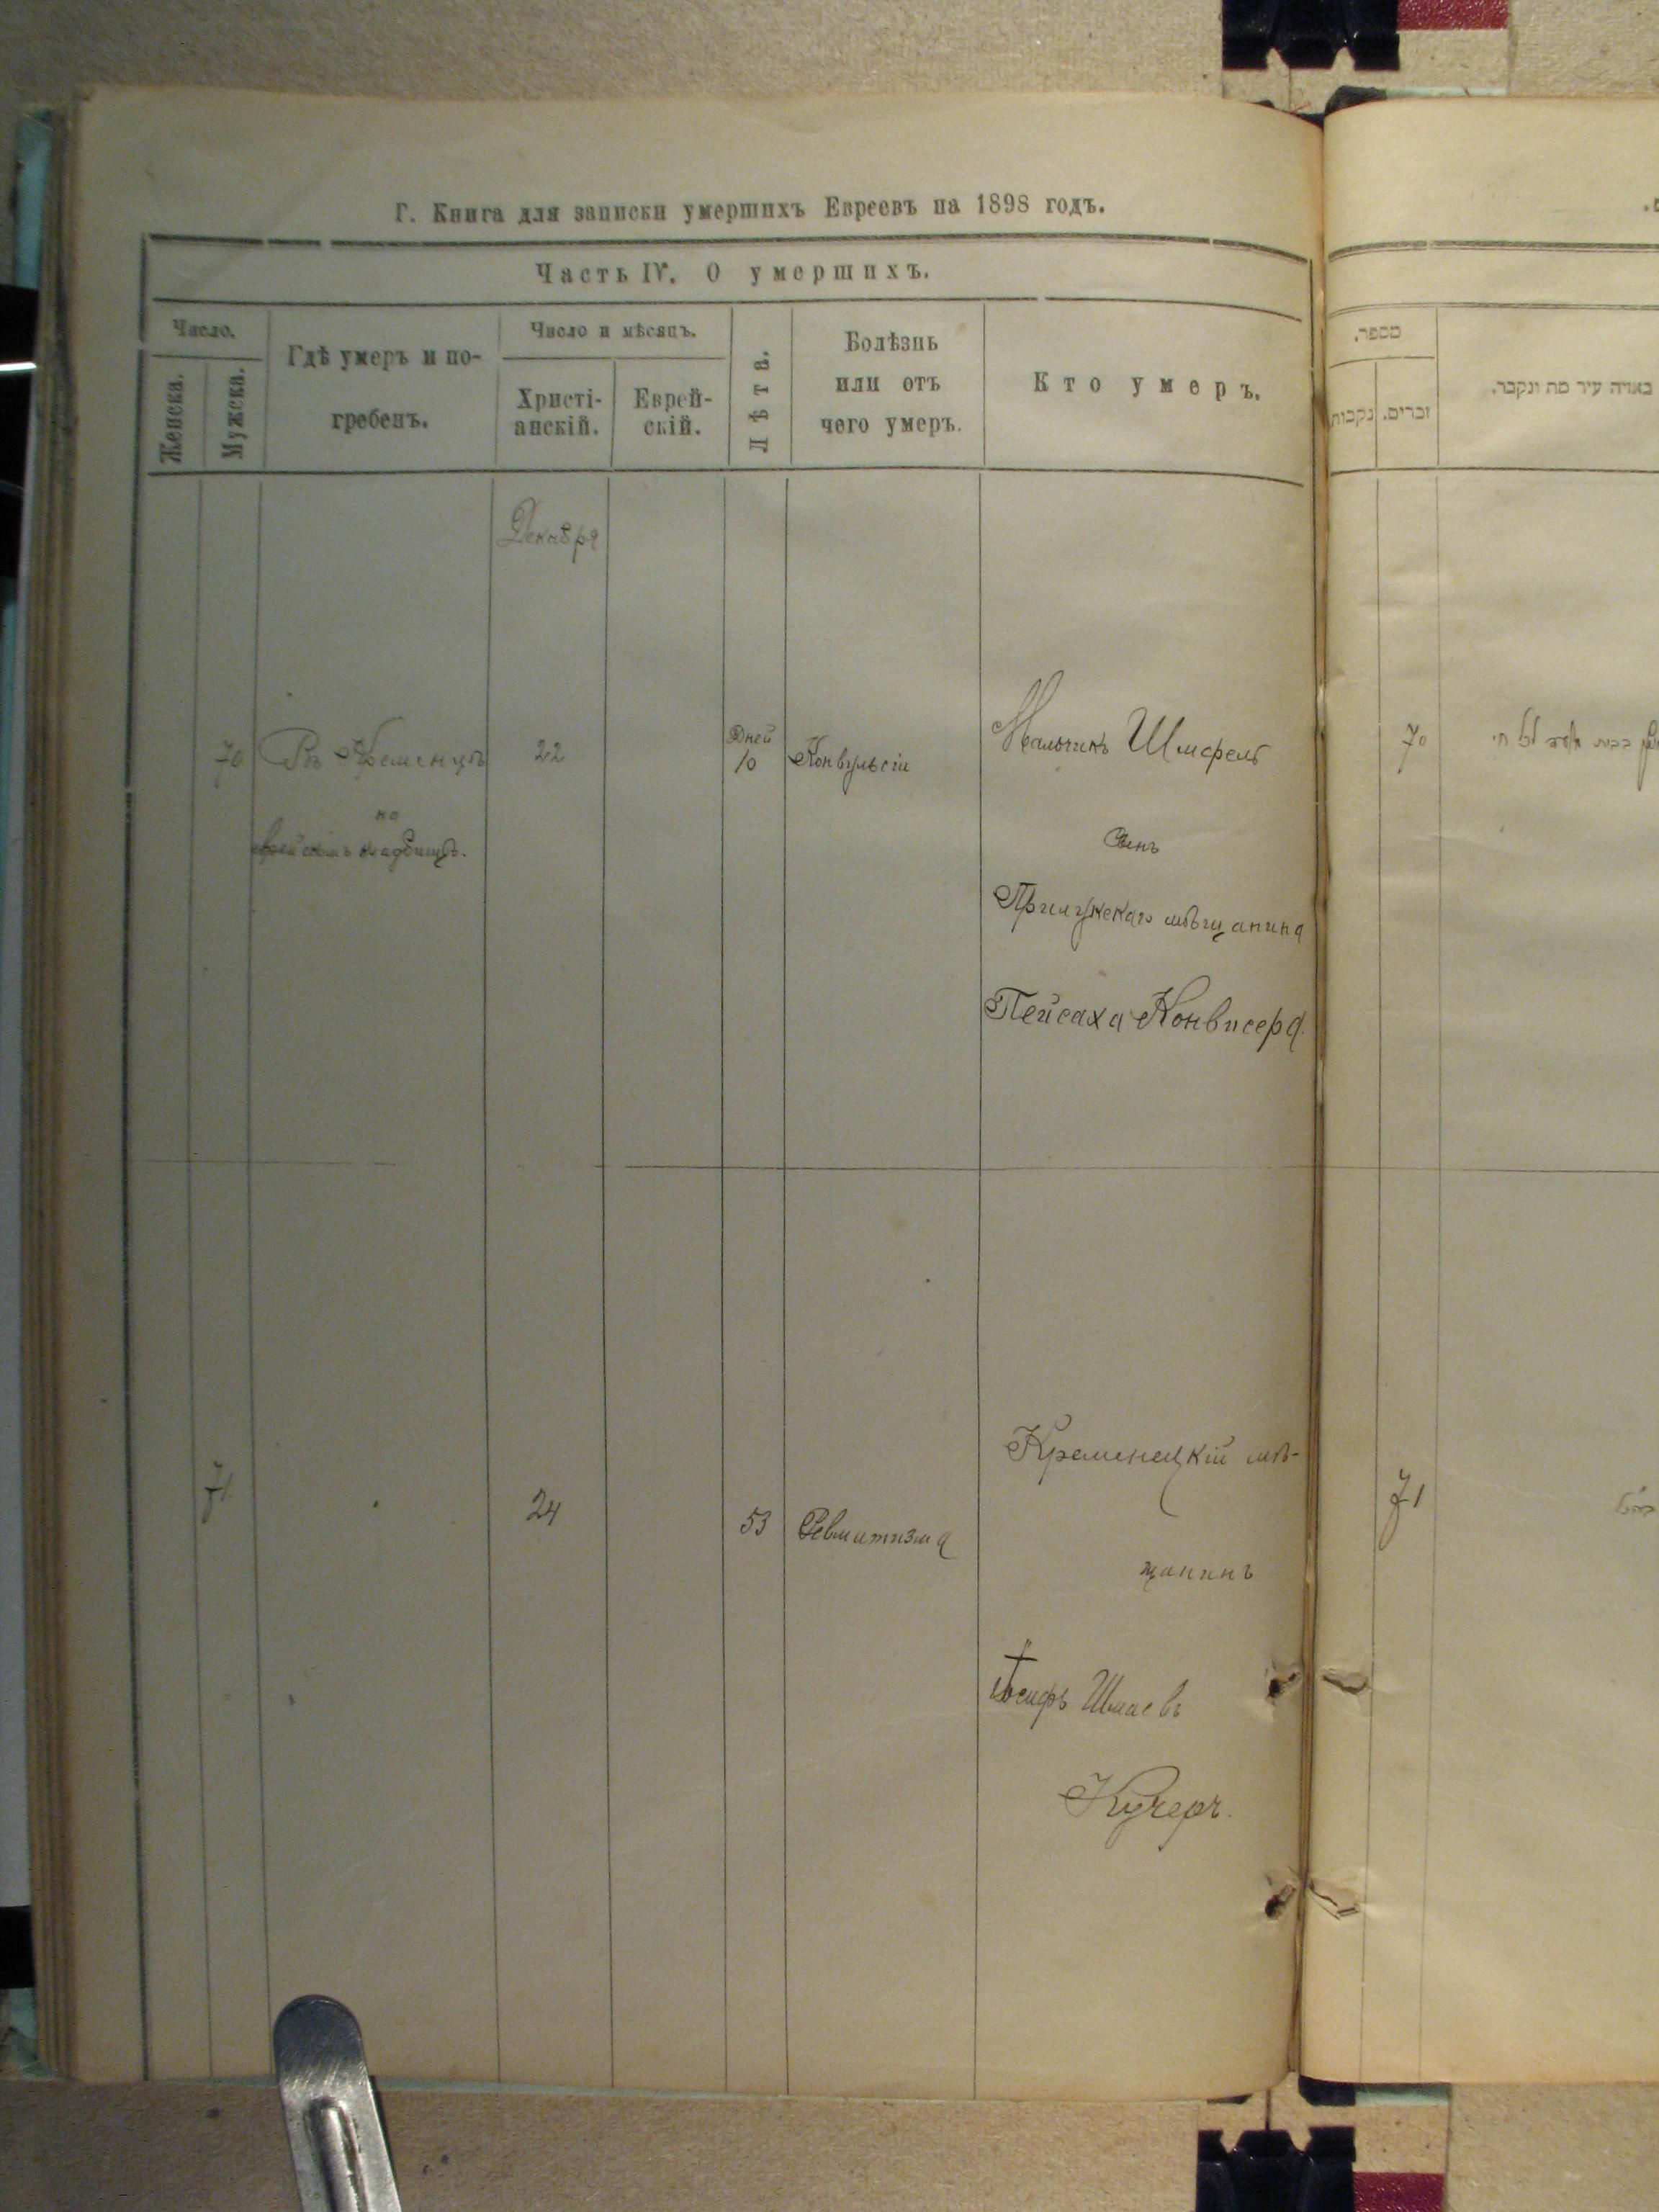 Г. Книга для записки умершихъ Евреевъ на 1898 годъ.
Часть IV. О умершихъ.
Число.
Женска.
Мужска.
Гдѣ умеръ и по-
гребенъ.
Число и мѣсяцъ.
Христі-
анскій.
Еврей-
скій.
Лѣта.
Болѣзнь
или отъ
чего умеръ.
Кто умеръ.
Декабря
70
Въ Кременцѣ
на
еврейскомъ кладбищѣ.
22
Дней
10
Конвульсіи
Мальчикъ Шмерель
Сынъ
Прилукскаго мѣщанина
Пейсаха Конвисера.
71
24
53
Ревматизма
Кременецкій мѣ-
щанинъ
Іосифъ Шмаевъ
Кучеръ.
מספר.
נקבות
זכרים.
באיזה עיר מת ונקבר.
70
71